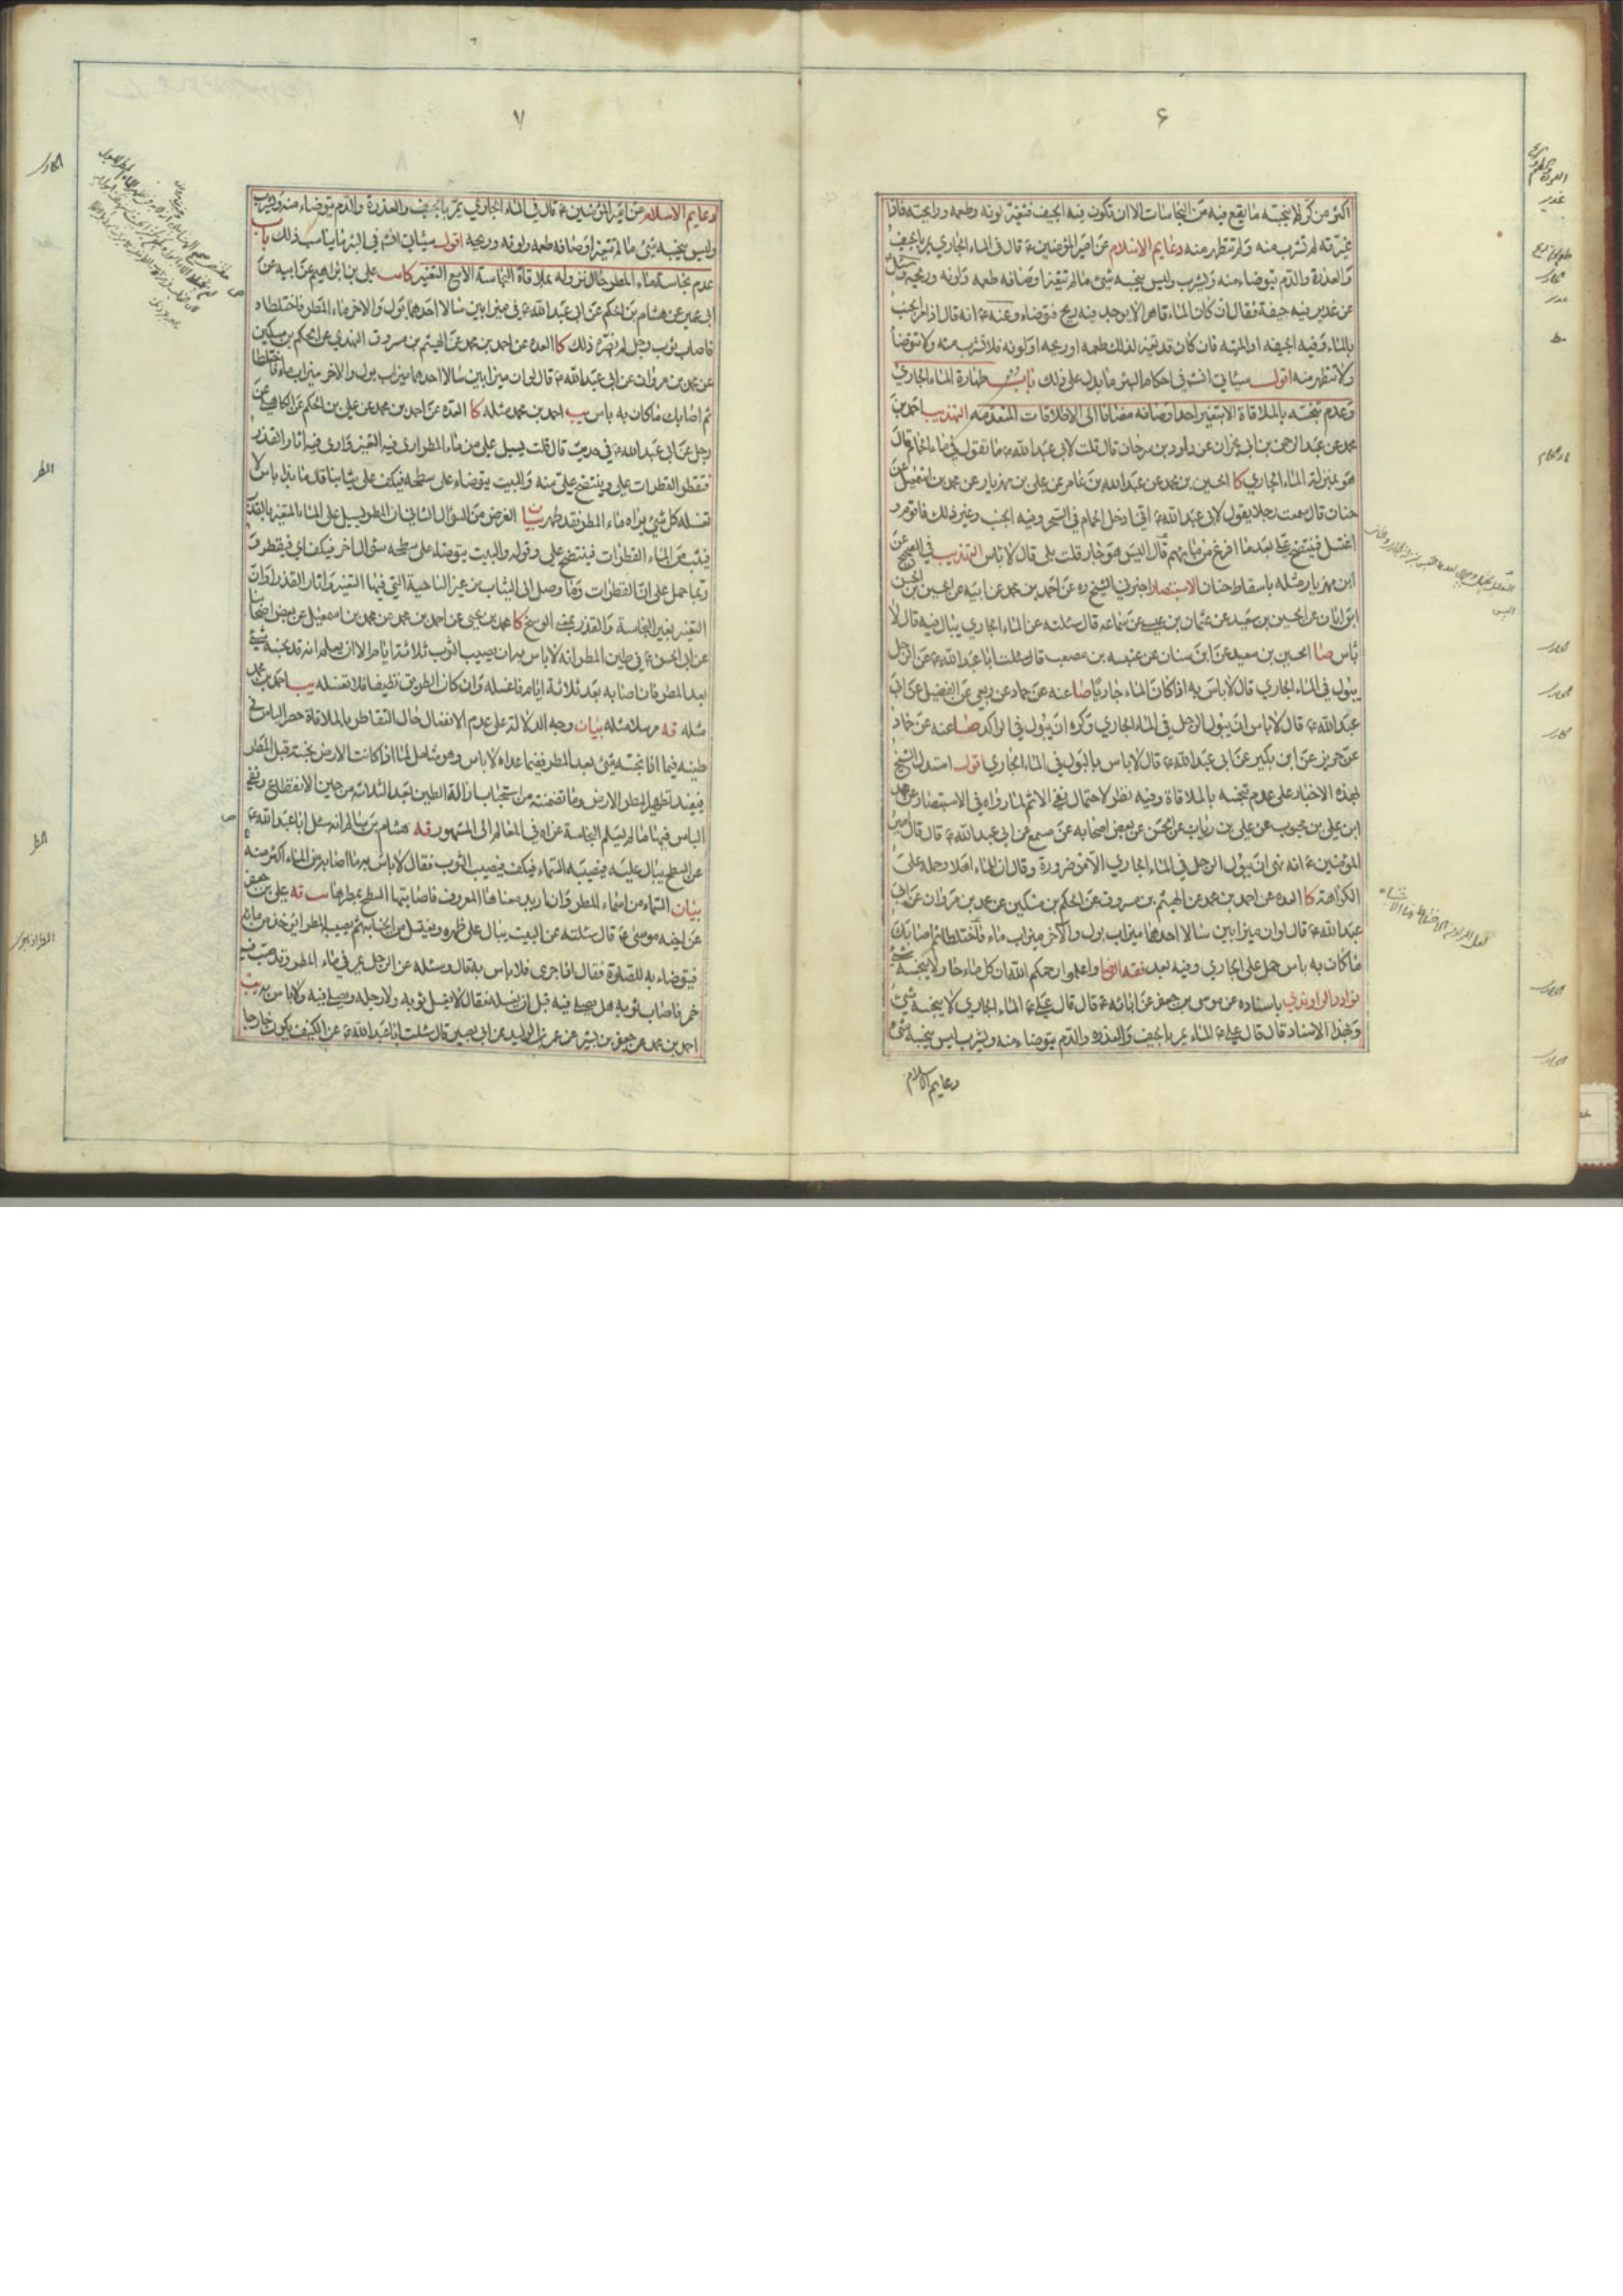 ۶
اكثر من كر لم ينجسه ما يقع فيه من النجاسات الا ان تكون فيه الجيف فتغير لونه وطعمه ورايحته فاذا
غيرته لم تشرب منه ولم تتطهر منه دعايم الاسلام عن امير المؤمنين ع قال في الماء الجاري يمر بالجيف
والعذرة والدم يتوضاء منه ويشرب وليس ينجسه شئ ما لم تتغير اوصافه طعمه ولونه وريحه وسئل
عن غدير فيه جيفة فقال ان كان الماء قاهرا لا يوجد فيه ريح فتوضاء وعنه ع انه قال اذا مر الجنب
بالماء وفيه الجيفه او الميته فان كان قد تغير لذلك طعمه او ريحه او لونه فلا تشرب منه ولا تتوضأ
ولا تتطهر منه اقول سيأتي انشم في احكام البئر ما يدل على ذلك باب طهارة الماء الجاري
وعدم تنجسه بالملاقاة الا بتغير احد اوصافه مضافا الى الاطلاقات المتقدمه التهذيب احمد بن
محمد عن عبد الرحمن بن ابي نجران عن داود بن سرحان قال قلت لابي عبد الله ع ما تقول في ماء الحمام قال
هو بمنزلة الماء الجاري كا الحسين بن محمد عن عبد الله بن عامر عن علي بن مهزيار عن محمد بن اسمعيل عن
حنان قال سمعت رجلا يقول لابي عبد الله ع اني ادخل الحمام في السحر وفيه الجنب وغير ذلك فاقوم و
اغتسل فينتضح علي بعد ما افرغ من مائهم قال اليس هو جار قلت بلى قال لا باس التهذيب في الصحيح عن
ابن مهزيار مثله باسقاط حنان الاستبصار اخبرني الشيخ ره عن احمد بن محمد عن ابيه عن الحسين بن الحسن
ابن ابان عن الحسين بن سعيد عن عثمان بن عيسى عن سماعه قال سئلته عن الماء الجاري يبال فيه قال لا
باس صا الحسين بن سعيد عن ابن سنان عن عنبسه بن مصعب قال سئلت ابا عبد الله ع عن الرجل
يبول في الماء الجاري قال لا باس به اذا كان الماء جاريا صا عنه عن حماد عن ربعي عن الفضيل عن ابي
عبد الله ع قال لا باس ان يبول الرجل في الماء الجاري وكره ان يبول في الراكد صا عنه عن حماد
عن حريز عن ابن بكير عن ابي عبد الله ع قال لا باس بالبول في الماء الجاري اقول استدل الشيخ
بهذه الاخبار على عدم تنجسه بالملاقاة وفيه نظر لاحتمال نفي الاثم لما رواه في الاستبصار عن محمد
ابن علي بن محبوب عن علي بن ريان عن الحسن عن بعض اصحابه عن مسمع عن ابي عبد الله ع قال قال امير
المؤمنين ع انه نهى ان يبول الرجل في الماء الجاري الا من ضرورة وقال ان للماء اهلا وحمله على
الكراهة كا العده عن احمد بن محمد عن الهيثم بن مسروق عن الحكم بن مسكين عن محمد بن مروان عن ابي
عبد الله ع قال لو ان ميزابين سالا احدهما ميزاب بول والآخر ميزاب ماء فاختلطا ثم اصابك
ما كان به باس حمل على الجاري وفيه بعد فقه الرضا واعلموا رحمكم الله ان كل ماء جار لا ينجسه شئ
نوادر الراوندي باسناده عن موسى بن جعفر عن ابائه ع قال قال علي ع الماء الجاري لا ينجسه شئ
وبهذا الاسناد قال قال علي ع الماء يمر بالجيف والعذره والدم يتوضاء منه ويشرب ليس ينجسه شئ
دعايم الاسلام
۷
دعايم الاسلام عن امير المؤمنين ع قال في الماء الجاري يمر بالجيف والعذرة والدم يتوضاء منه ويشرب
وليس ينجسه شئ ما لم تتغير اوصافه طعمه ولونه وريحه اقول سيأتي انشم في البئر ما يناسب ذلك باب
عدم نجاسة ماء المطر حال نزوله بملاقاة النجاسة الا مع التغير كا علي بن ابراهيم عن ابيه عن
ابي عمير عن هشام بن الحكم عن ابي عبد الله ع في ميزابين سالا احدهما بول والاخر ماء المطر فاختلطا
فاصاب ثوب رجل لم يضره ذلك كا العده عن احمد بن محمد عن الهيثم بن مسروق النهدي عن الحكم بن مسكين
عن محمد بن مروان عن ابي عبد الله ع قال لو ان ميزابين سالا احدهما ميزاب بول والاخر ميزاب ماء فاختلطا
ثم اصابك ما كان به باس يب احمد بن محمد مثله كا العده عن احمد بن محمد عن علي بن الحكم عن الكاهلي عن
رجل عن ابي عبد الله ع في حديث قال قلت يسيل علي من ماء المطر ارى فيه التغير وارى فيه آثار القذر
فتقطر القطرات علي وينتضح علي منه والبيت يتوضاء على سطحه فيكف على ثيابنا قال ما بذا باس لا
تغسله كل شئ يراه ماء المطر فقد طهر بيان الغرض من السؤال الثاني ان المطر يسيل على الماء المتغير بالقذر
فيثب من الماء القطرات فينتضح علي وقوله والبيت يتوضاء على سطحه سؤال اخر فيكف اي فيقطر و
ربما حمل على ان القطرات وما وصل الى الثياب من غير الناحية التي فيها التغير واثار القذر او ان
التغير بغير النجاسة والقذر بمعنى الوسخ كا محمد بن يحيى عن احمد بن محمد عن محمد بن اسمعيل عن بعض اصحابنا
عن ابي الحسن ع في طين المطر انه لا باس به ان يصيب الثوب ثلاثة ايام الا ان يعلم انه قد نجسه شئ
بعد المطر فان اصابه بعد ثلاثة ايام فاغسله وان كان الطريق نظيفا فلا تغسله يب احمد بن محمد
مثله قه مرسلا مثله بيان وجه الدلالة على عدم الانفعال حال التقاطر بالملاقاة حصر الباس في
طينه فيما اذا نجسه شئ بعد المطر ففيما عداه لا باس وهو شامل لما اذا كانت الارض نجسة قبل المطر
فيفيد تطهير المطر الارض وما تضمنته من استحباب ازالة الطين بعد الثلاثه من حين الانقطاع ونفي
الباس فيها ما لم يعلم النجاسة عزاه في المعالم الى المشهور قه هشام بن سالم انه سئل ابا عبد الله ع
عن السطح يبال عليه فيصيبه السماء فيكف فيصيب الثوب فقال لا باس به ما اصابه من الماء اكثر منه
بيان السماء من اسماء المطر وان اريد معناها المعروف فاصابتها السطح بمطرها قه علي بن جعفر
عن اخيه موسى ع قال سئلته عن البيت يبال على ظهره ويغتسل من الجنابه ثم يصيبه المطر ايؤخذ من مائه
فيتوضاء به للصلوة فقال اذا جرى فلا باس به قال وسئله عن الرجل يمر في ماء المطر وقد صب فيه
خمر فاصاب ثوبه هل يصلي فيه قبل ان يغسله فقال لا يغسل ثوبه ولا رجله ويصلي فيه ولا باس به يب
احمد بن محمد عن جعفر بن بشير عن عمر بن الوليد عن ابي بصير قال سئلت ابا عبد الله ع عن الكنيف يكون خارجا